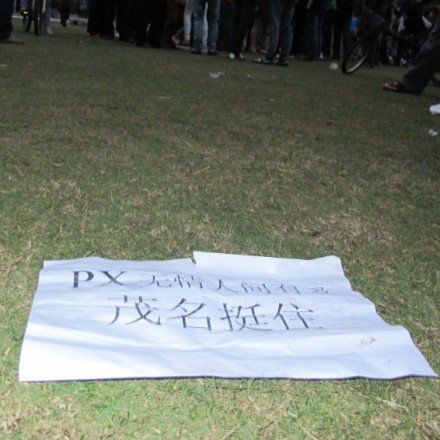 PX 无情人间有爱
茂名挺住